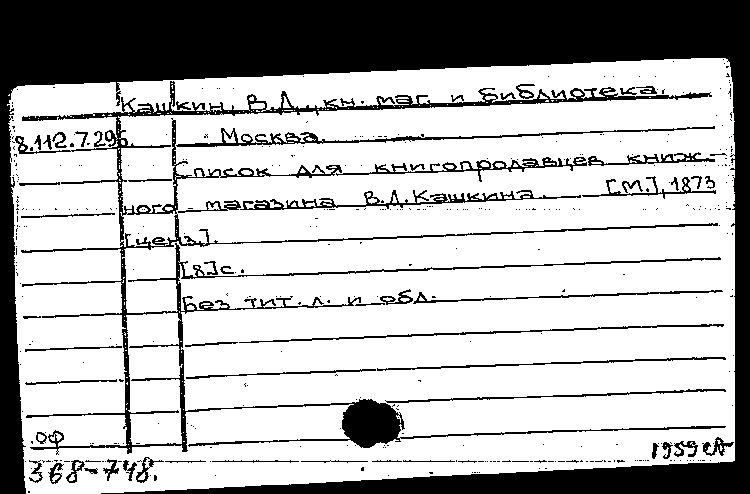 Кашкин, В.Д., кн. маг. и библиотека.
8.112.7.296. Москва.
Список для книгопродавцев книж-
ного магазина В.Д.Кашкина. [М.], 1873
[ценз.].
[8]с.
Без тит. л. и обл.
ОФ
368-748.